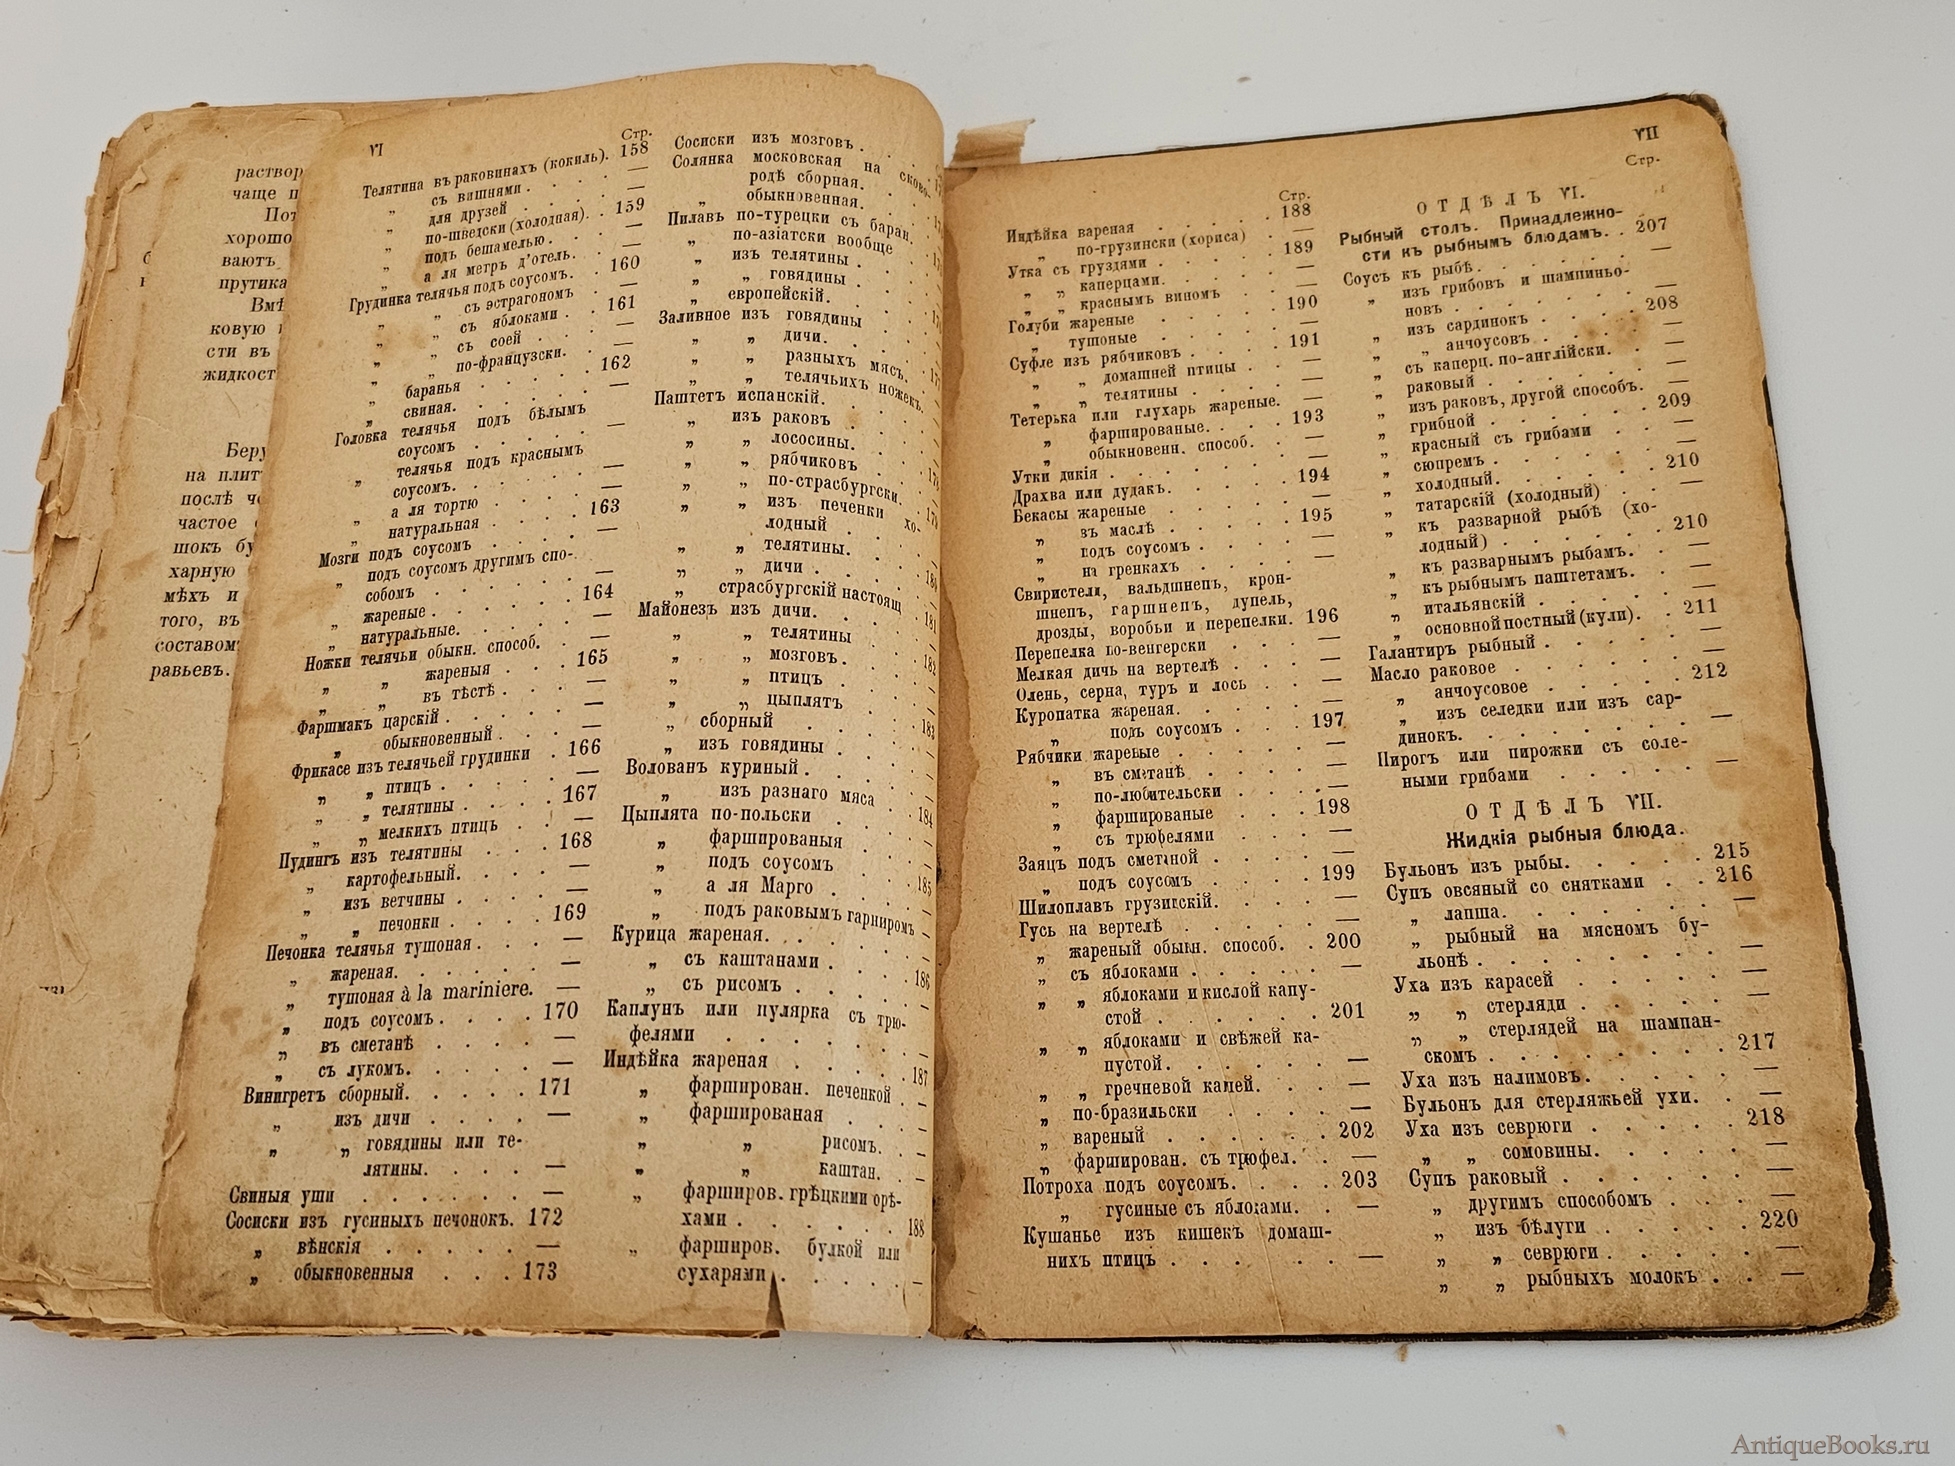 раствор
чаще п
Пот
хорошо
ваютъ
прутика
Вмѣ
ковую
сти въ
жидкост
Беру
на плит
послѣ че
частое
шокъ бу
харную
мѣхъ и
того, въ
составом
равьевъ.
VI
Стр.
Телятина въ раковинахъ (кокиль). 158
„ съ вишнями . . . . —
„ для друзей . . . . —
„ по-шведски (холодная). . 159
„ подъ бешамелью. . . . —
„ а ля метръ д'отель. . . —
Грудинка телячья подъ соусомъ. . 160
„ „ съ эстрагономъ . —
„ „ съ яблоками . . 161
„ „ съ соей . . . —
„ „ по-французски. . —
„ баранья . . . . . 162
„ свиная. . . . . . —
Головка телячья подъ бѣлымъ
соусомъ . . . . . —
„ телячья подъ краснымъ
соусомъ. . . . . . —
„ а ля тортю . . . . —
„ натуральная . . . . 163
Мозги подъ соусомъ . . . . —
„ подъ соусомъ другимъ спо-
собомъ . . . . . . —
„ жареные . . . . . . 164
„ натуральные. . . . . —
Ножки телячьи обыкн. способ. . —
„ „ жареныя . . . 165
„ „ въ тѣстѣ . . . —
Фаршмакъ царскій . . . . . —
„ обыкновенный . . . . —
Фрикасе изъ телячьей грудинки . 166
„ „ птицъ . . . . . —
„ „ телятины . . . . 167
„ „ мелкихъ птицъ . . —
Пудингъ изъ телятины . . . 168
„ картофельный. . . . . —
„ изъ ветчины . . . . . —
„ „ печонки . . . . 169
Печонка телячья тушоная . . . —
„ жареная. . . . . . —
„ тушоная à la mariniere. —
„ подъ соусомъ . . . . 170
„ въ сметанѣ . . . . —
„ съ лукомъ. . . . . —
Винигретъ сборный. . . . . 171
„ изъ дичи . . . . —
„ „ говядины или те-
лятины. . . . —
Свиныя уши . . . . . . —
Сосиски изъ гусиныхъ печонокъ. 172
„ вѣнскія . . . . . —
„ обыкновенныя . . . 173
Сосиски изъ мозговъ . . .
Солянка московская на сково-
родѣ сборная. . .
„ обыкновенная. . .
Пилавъ по-турецки съ баран.
„ по-азіатски вообще
„ изъ телятины . . .
„ „ говядины . . .
„ европейскій. . . .
Заливное изъ говядины
„ „ дичи. . . .
„ „ разныхъ мясъ.
„ „ телячьихъ ножекъ.
Паштетъ испанскій. . . .
„ изъ раковъ . . .
„ „ лососины. . .
„ „ рябчиковъ . .
„ „ по-страсбургски.
„ „ изъ печенки хо-
лодный . . .
„ „ телятины. . .
„ „ дичи . . . .
„ страсбургскій настоящ
Майонезъ изъ дичи. . . . 181
„ „ телятины . . .
„ „ мозговъ. . . . 182
„ „ птицъ . . . .
„ „ цыплятъ . . .
„ сборный . . . . 183
„ изъ говядины . . . —
Волованъ куриный . . . . —
„ изъ разнаго мяса . . —
Цыплята по-польски . . . 184
„ фаршированыя . . —
„ подъ соусомъ . . —
„ а ля Марго . . . 185
„ подъ раковымъ гарниромъ —
Курица жареная. . . . . —
„ съ каштанами . . . —
„ съ рисомъ . . . . 186
Каплунъ или пулярка съ трю-
фелями . . . . . —
Индѣйка жареная . . . . 187
„ фарширован. печенкой . —
„ фаршированая . . . —
„ „ рисомъ. . —
„ „ каштан. . —
„ фарширов. грѣцкими орѣ-
хами . . . . . . 188
„ фарширов. булкой или
сухарями . . . . . —
VII
Стр.
Индѣйка вареная . . . . . 188
„ по-грузински (хориса) . —
Утка съ груздями . . . . . 189
„ „ каперцами. . . . . —
„ „ краснымъ виномъ . . —
Голуби жареные . . . . . 190
„ тушоные . . . . . —
Суфле изъ рябчиковъ . . . . 191
„ „ домашней птицы . . —
„ „ телятины . . . . —
Тетерька или глухарь жареные. —
„ фаршированые. . . . 193
„ обыкновенн. способ. . . —
Утки дикія . . . . . . . —
Драхва или дудакъ. . . . . 194
Бекасы жареные . . . . . —
„ въ маслѣ . . . . . 195
„ подъ соусомъ . . . . —
„ на гренкахъ . . . . —
Свиристели, вальдшнепъ, крон-
шнепъ, гаршнепъ, дупель,
дрозды, воробьи и перепелки. 196
Перепелка по-венгерски . . . —
Мелкая дичь на вертелѣ . . . —
Олень, серна, туръ и лось . . —
Куропатка жареная. . . . . —
„ подъ соусомъ . . . 197
Рябчики жареные . . . . . —
„ въ сметанѣ . . . . —
„ по-любительски . . . —
„ фаршированые . . . 198
„ съ трюфелями . . . —
Заяцъ подъ сметаной . . . . —
„ подъ соусомъ . . . . 199
Шилоплавъ грузинскій. . . . —
Гусь на вертелѣ . . . . . —
„ жареный обыкн. способ. . 200
„ съ яблоками . . . . . —
„ „ яблоками и кислой капу-
стой . . . . . . 201
„ „ яблоками и свѣжей ка-
пустой. . . . . . —
„ „ гречневой кашей. . . —
„ по-бразильски . . . . —
„ вареный . . . . . . 202
„ фарширован. съ трюфел. . —
Потроха подъ соусомъ. . . . 203
„ гусиные съ яблоками. . —
Кушанье изъ кишекъ домаш-
нихъ птицъ . . . . . . —
Стр.
ОТДѢЛЪ VI.
Рыбный столъ. Принадлежно-
сти къ рыбнымъ блюдамъ. . 207
Соусъ къ рыбѣ. . . . . . —
„ изъ грибовъ и шампиньо-
новъ . . . . . . —
„ изъ сардинокъ . . . . 208
„ „ анчоусовъ . . . . —
„ съ каперц. по-англійски. . —
„ раковый . . . . . . —
„ изъ раковъ, другой способъ. —
„ грибной . . . . . . 209
„ красный съ грибами . . —
„ сюпремъ . . . . . . —
„ холодный. . . . . . 210
„ татарскій (холодный) . . —
„ къ разварной рыбѣ (хо-
лодный) . . . . . 210
„ къ разварнымъ рыбамъ. . —
„ къ рыбнымъ паштетамъ. . —
„ итальянскій . . . . . —
„ основной постный (кули). . 211
Галантиръ рыбный . . . . . —
Масло раковое . . . . . . —
„ анчоусовое . . . . . 212
„ изъ селедки или изъ сар-
динокъ. . . . . . —
Пирогъ или пирожки съ соле-
ными грибами . . . . . —
ОТДѢЛЪ VII.
Жидкія рыбныя блюда.
Бульонъ изъ рыбы. . . . . 215
Супъ овсяный со снятками . . 216
„ лапша. . . . . . . —
„ рыбный на мясномъ бу-
льонѣ . . . . . . . —
Уха изъ карасей . . . . . —
„ „ стерляди . . . . . —
„ „ стерлядей на шампан-
скомъ . . . . . . . 217
Уха изъ налимовъ. . . . . —
Бульонъ для стерляжьей ухи. . —
Уха изъ севрюги . . . . . 218
„ „ сомовины. . . . . —
Супъ раковый . . . . . . —
„ другимъ способомъ . . . —
„ изъ бѣлуги . . . . . 220
„ „ севрюги . . . . . —
„ „ рыбныхъ молокъ . . —
AntiqueBooks.ru